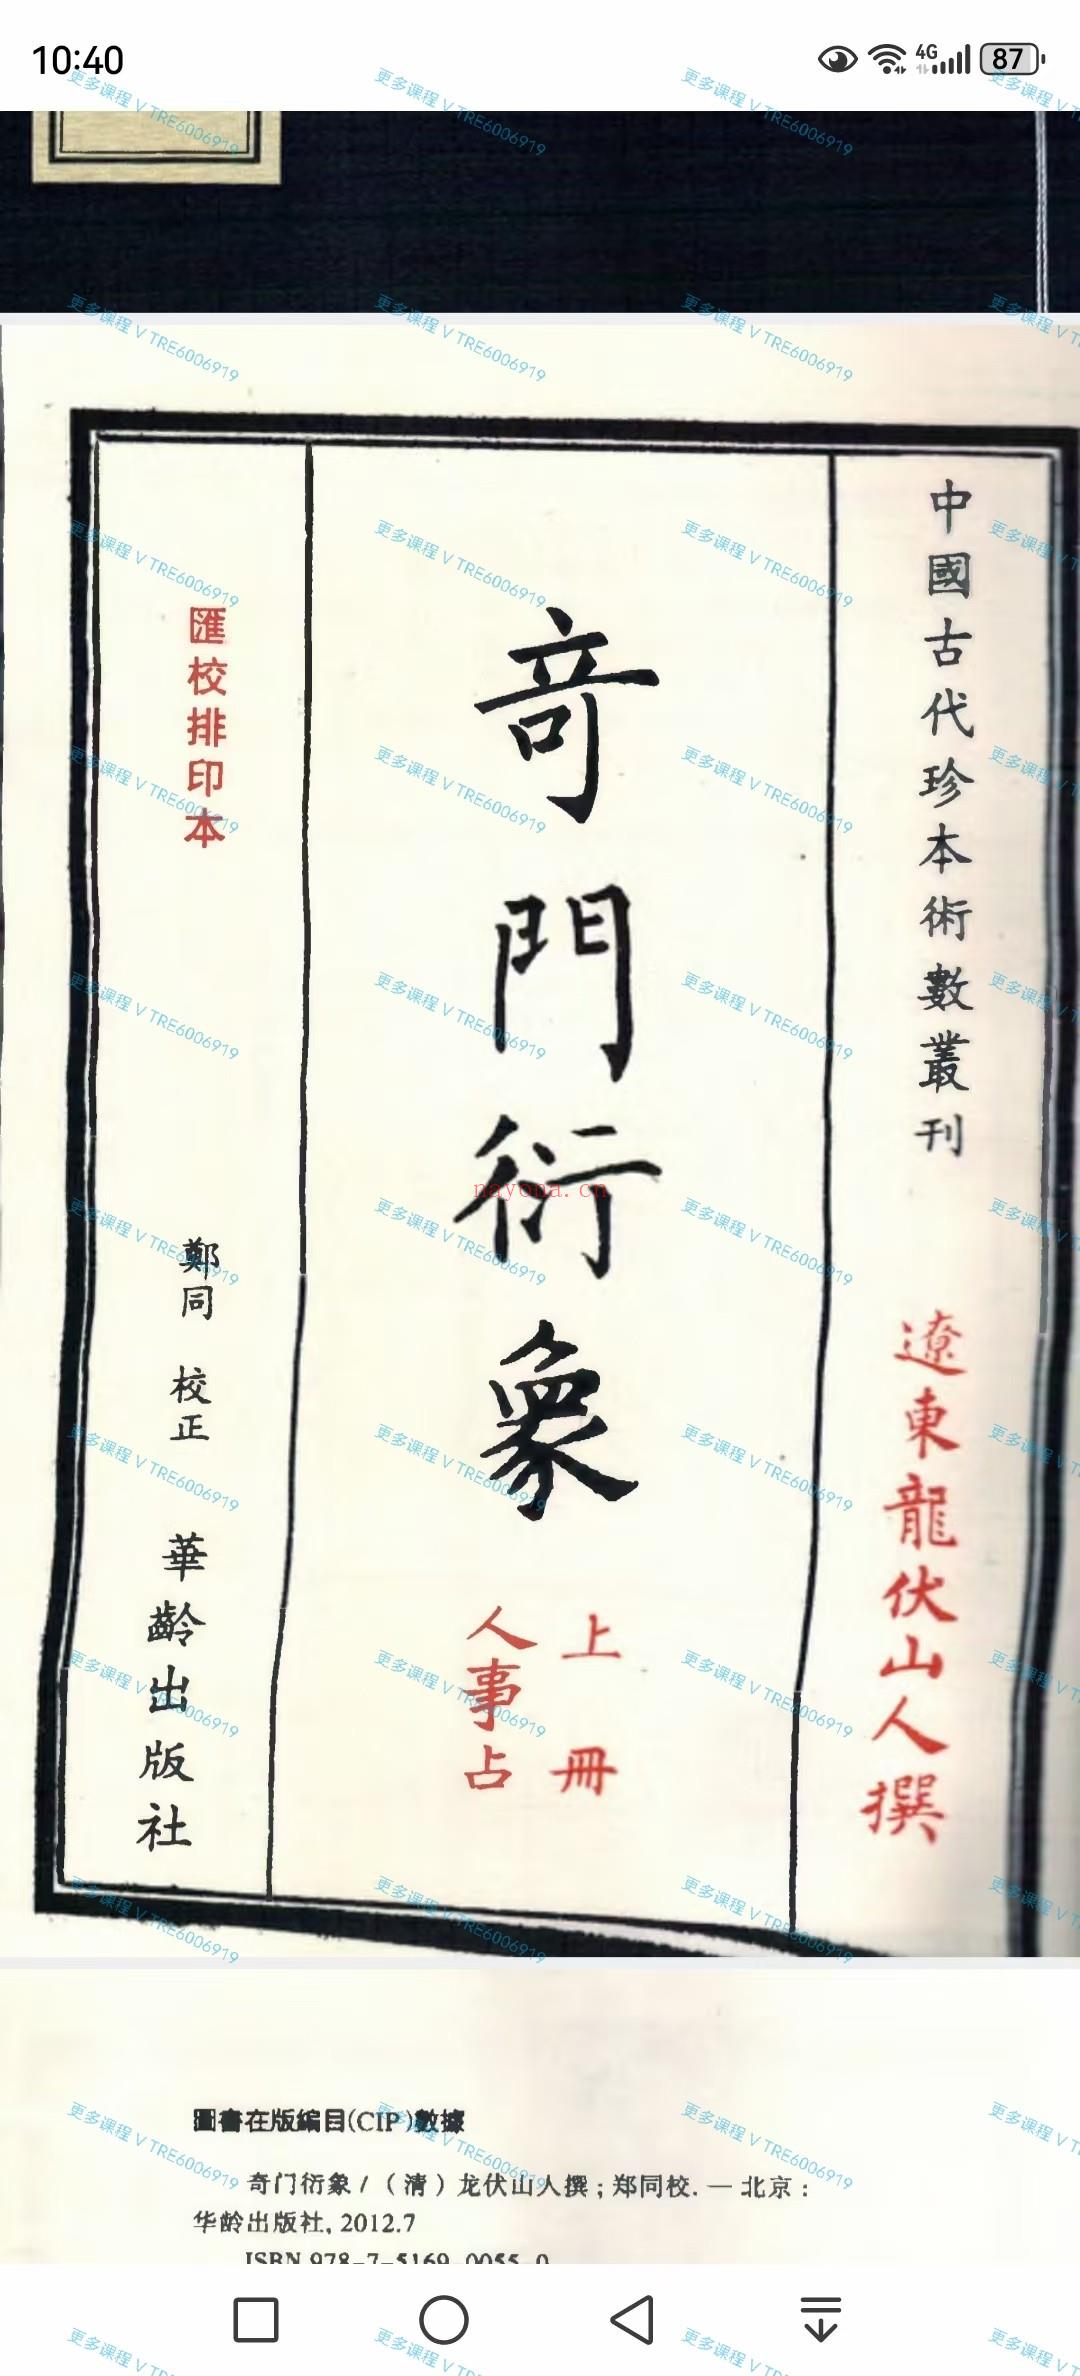 10:40
4G
87
中國古代珍本術數叢刊
遼東龍伏山人撰
奇門衍象
上冊
人事占
匯校排印本
鄭同 校正
華齡出版社
nayona.cn
圖書在版編目(CIP)數據
奇门衍象 / （清）龙伏山人撰；郑同校. — 北京：
华龄出版社, 2012.7
ISBN 978-7-5169-0055-0
更多课程 V TRE6006919